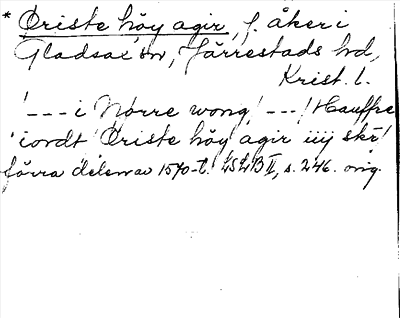 * Øriste höy agir, f. åker i
Gladsax sn, Järrestads hd,
Krist. l.
'--- i Nørre wong' ---' Hauffre
iordt' Øriste höy agir iiij skr'
förra delen av 1570-t. LSLB II, s. 246. orig.